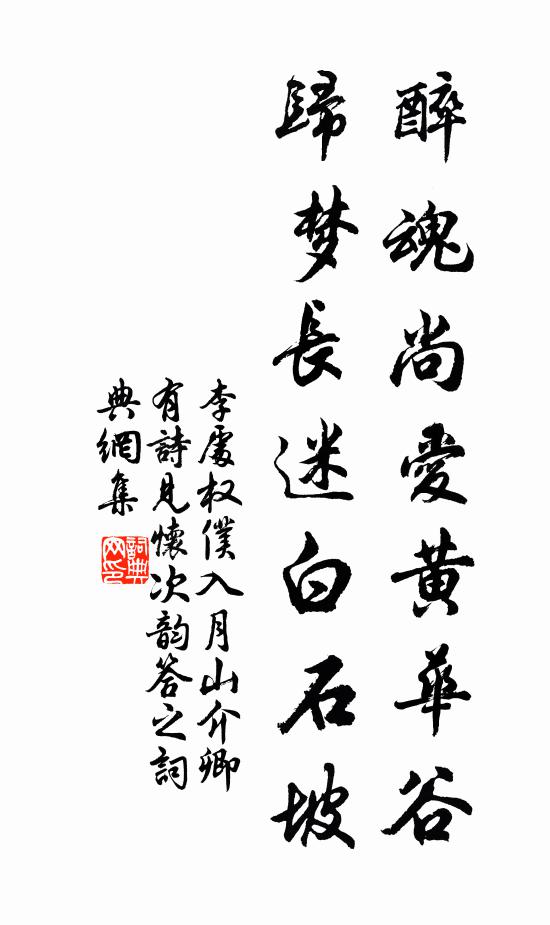 醉魂尚愛黄華谷
歸梦長迷白石坡
李處权僕入月山介卿
有詩見懷次韵答之詞
典網集
詞典网印